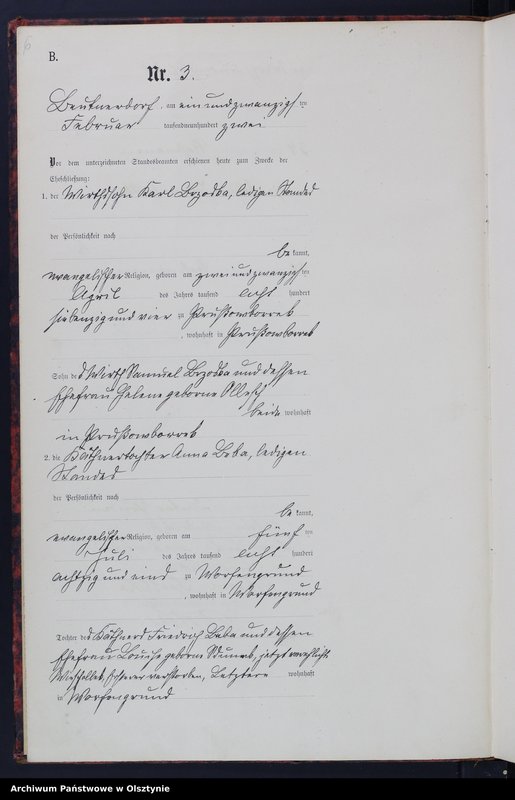 B.
Nr. 3.
Beutnerdorf, am einundzwanzigsten
Februar tausendneunhundert zwei
Vor dem unterzeichneten Standesbeamten erschienen heute zum Zwecke der
Eheschließung:
1. der Wirthssohn Karl Brzoska, ledigen Standes
der Persönlichkeit nach
be kannt,
evangelischer Religion, geboren am zweiundzwanzigsten
April des Jahres tausend acht hundert
siebenzig und vier zu
, wohnhaft in
Sohn des Wirth Samuel Brzoska und dessen
Ehefrau Helene geborne
beide wohnhaft
in
2. die Käthnertochter Anna Beba, ledigen
Standes
der Persönlichkeit nach
be kannt,
evangelischer Religion, geboren am fünf ten
Juli des Jahres tausend acht hundert
achtzig und eins zu Worfengrund
, wohnhaft in Worfengrund
Tochter des Käthners Friedrich Beba und dessen
Ehefrau Louise geborne jetzt verehlichte
Ersterer verstorben, Letztere wohnhaft
in Worfengrund
Archiwum Państwowe w Olsztynie